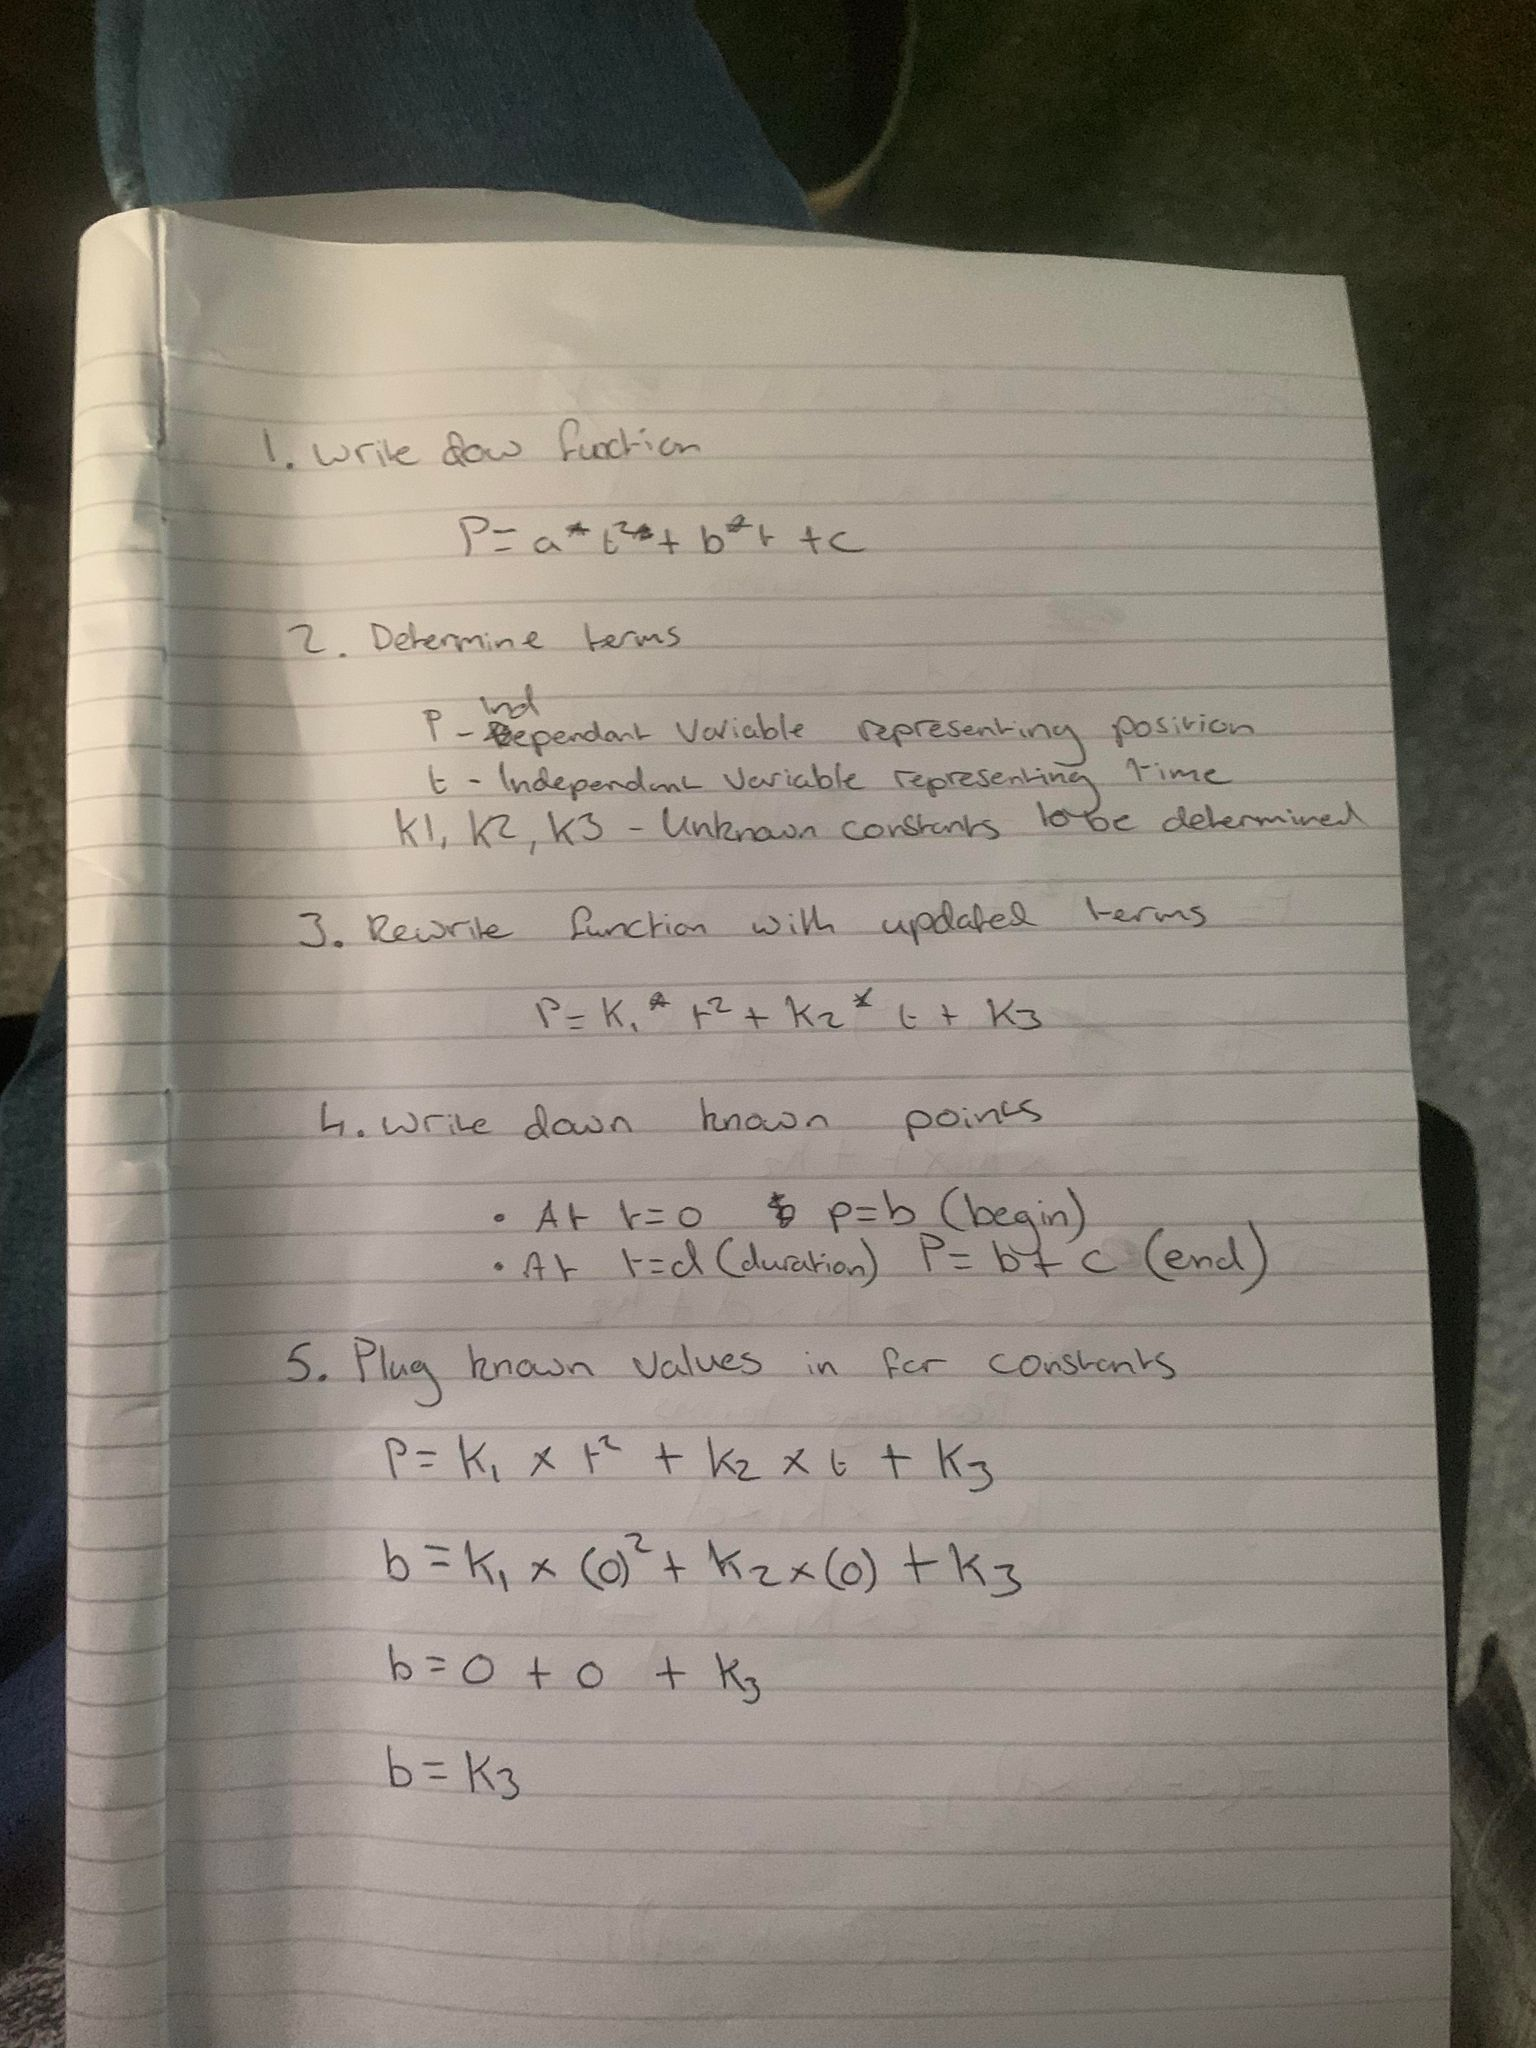 1. Write dow function
P= a * t² + b * t + c
2. Determine terms
Ind
P - Dependant Variable representing position
t - Independant Variable representing time
K1, K2, K3 - Unknown constants to be determined
3. Rewrite function with updated terms
P= K₁ * t² + K₂ * t + K₃
4. Write down known points
• At t=0 p=b (begin)
• At t=d (duration) P= b + c (end)
5. Plug known values in for constants
P= K₁ × t² + K₂ × t + K₃
b = K₁ × (0)² + K₂ × (0) + K₃
b = 0 + 0 + K₃
b = K₃